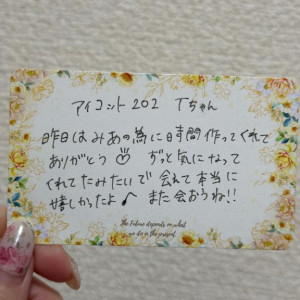 アイコット202 Tちゃん
昨日はみあの為に時間作ってくれて
ありがとう♡ ずっと気になって
くれてたみたいで 会えて本当に
嬉しかったよ♪ また会おうね!!
The Future depends on what
we do in the present.